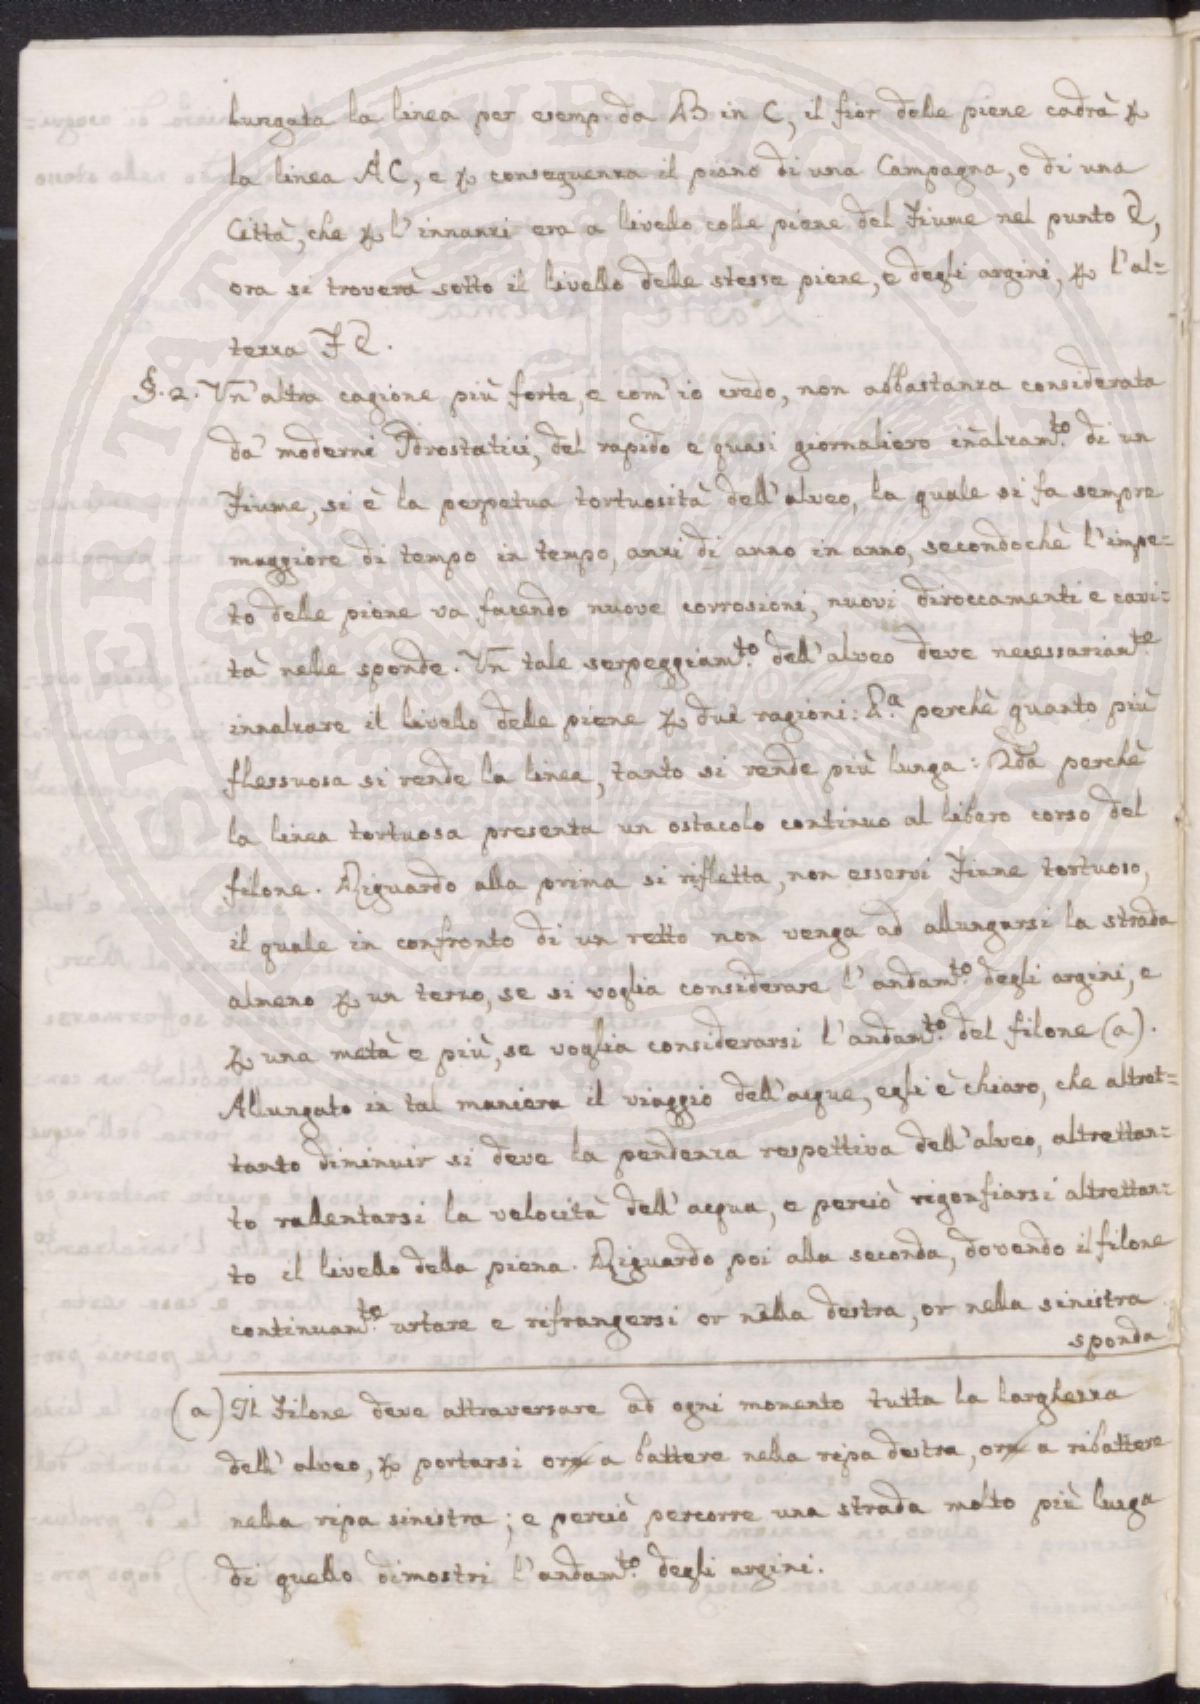 lungata la linea per esemp. da B in C, il fior delle piene cadrà p
la linea AC, e p conseguenza il piano di una Campagna, o di una
Città, che p l'innanzi era a livello colle piene del Fiume nel punto D,
ora si troverà sotto il livello delle stesse piene, e degli argini, p l'al=
tezza F D.
§. 2. Un'altra cagione più forte, e com'io credo, non abbastanza considerata
da' moderni Idrostatici, del rapido e quasi giornaliero inalzam.to di un
Fiume, si è la perpetua tortuosità dell'alveo, la quale si fa sempre
maggiore di tempo in tempo, anzi di anno in anno, secondochè l'impe=
to delle piene va facendo nuove corrosioni, nuovi diroccamenti e cavi=
tà nelle sponde. Un tale serpeggiam.to dell'alveo deve necessariam.te
innalzare il livello delle piene p due ragioni: P.a perchè quanto più
flessuosa si rende la linea, tanto si rende più lunga: 2da perchè
la linea tortuosa presenta un ostacolo continuo al libero corso del
filone. Riguardo alla prima si rifletta, non esservi Fiume tortuoso,
il quale in confronto di un retto non venga ad allungarsi la strada
almeno p un terzo, se si voglia considerare l'andam.to degli argini, e
p una metà e più, se voglia considerarsi l'andam.to del filone (a).
Allungato in tal maniera il viaggio dell'acque, egli è chiaro, che altret=
tanto diminuir si deve la pendenza respettiva dell'alveo, altrettan=
to rallentarsi la velocità dell'acqua, e perciò rigonfiarsi altrettan=
to il livello della piena. Riguardo poi alla seconda, dovendo il filone
continuam.te urtare e rifrangersi or nella destra, or nella sinistra
sponda
(a) Il Filone deve attraversare ad ogni momento tutta la larghezza
dell'alveo, p portarsi ora a battere nella ripa destra, ora a ribattere
nella ripa sinistra; e perciò percorre una strada molto più lunga
di quello dimostri l'andam.to degli argini.